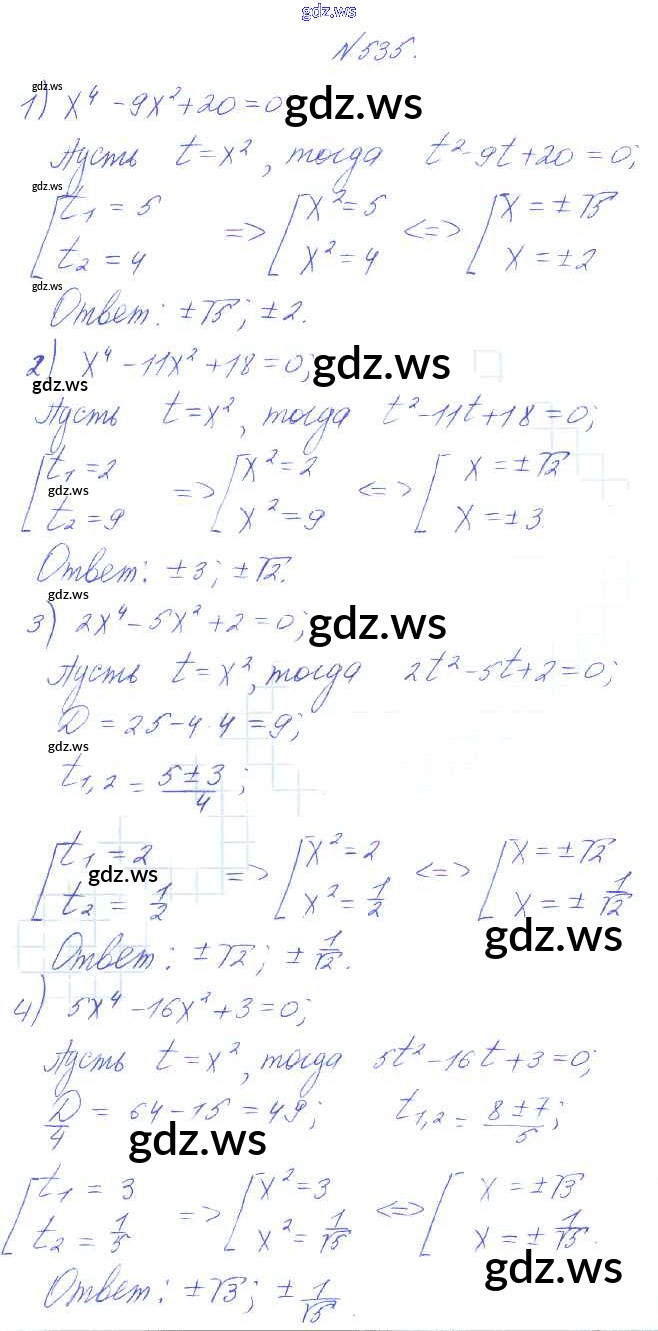 gdz.ws
№ 535.
gdz.ws
1) x⁴ - 9x² + 20 = 0 gdz.ws
Пусть t = x², тогда t² - 9t + 20 = 0;
gdz.ws
[t₁ = 5 t₂ = 4 => [x² = 5 x² = 4 <=> [x = ±√5 x = ±2
gdz.ws
Ответ: ±√5; ±2.
2) x⁴ - 11x² + 18 = 0; gdz.ws
gdz.ws
Пусть t = x², тогда t² - 11t + 18 = 0;
[t₁ = 2 t₂ = 9 => [x² = 2 x² = 9 <=> [x = ±√2 x = ±3.
gdz.ws
Ответ: ±3; ±√2.
gdz.ws
3) 2x⁴ - 5x² + 2 = 0; gdz.ws
Пусть t = x², тогда 2t² - 5t + 2 = 0;
D = 25 - 4·4 = 9;
gdz.ws
t₁,₂ = (5 ± 3)/4;
[t₁ = 2 t₂ = 1/2 => [x² = 2 x² = 1/2 <=> [x = ±√2 x = ± 1/√2
gdz.ws
gdz.ws
Ответ: ±√2; ± 1/√2.
4) 5x⁴ - 16x² + 3 = 0;
Пусть t = x², тогда 5t² - 16t + 3 = 0;
D/4 = 64 - 15 = 49; t₁,₂ = (8 ± 7)/5;
gdz.ws
[t₁ = 3 t₂ = 1/5 => [x² = 3 x² = 1/√5 <=> [x = ±√3 x = ± 1/√5.
gdz.ws
Ответ: ±√3; ± 1/√5.